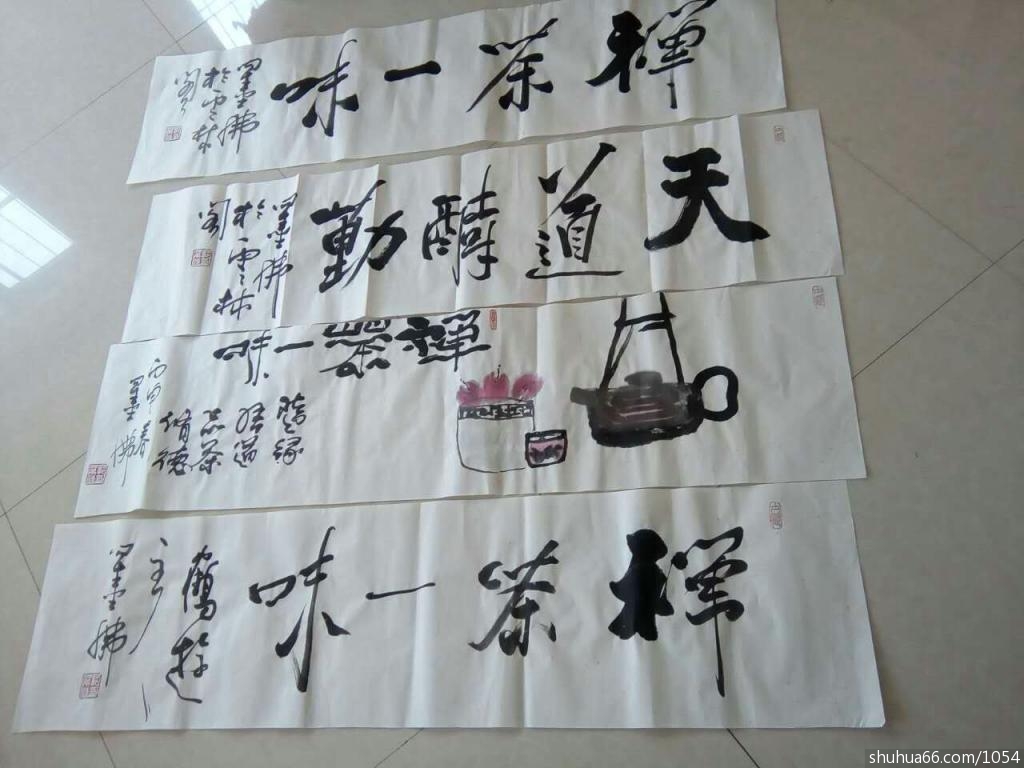 禪茶一味
墨佛
於雲林
閣
天道酬勤
墨佛
於雲林
閣
禪茶一味
隨緣
悟道
品茶
脩德
丙申春
墨佛
禪茶一味
墨佛
shuhua66.com/1054